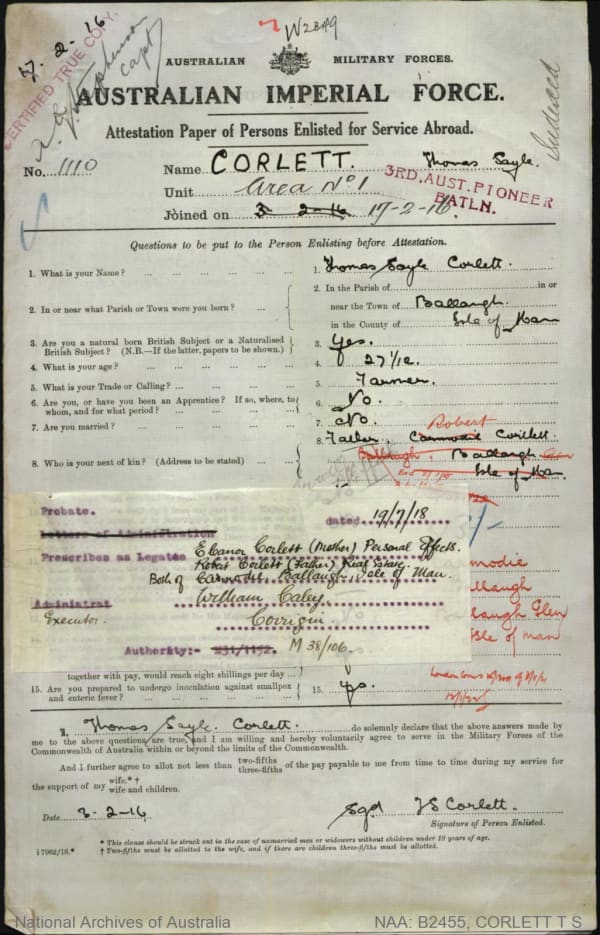 W2349
3.2.16
CERTIFIED TRUE COPY.
Capt
Indexed
AUSTRALIAN MILITARY FORCES.
AUSTRALIAN IMPERIAL FORCE.
Attestation Paper of Persons Enlisted for Service Abroad.
No. 1110 Name CORLETT. Thomas Sayle.
Unit Area No 1
3RD. AUST. PIONEER BATLN.
Joined on 3-2-16 17-2-16.
Questions to be put to the Person Enlisting before Attestation.
1. What is your Name? 1. Thomas Sayle Corlett.
2. In or near what Parish or Town were you born? 2. In the Parish of in or
near the Town of Ballaugh.
in the County of Isle of Man
3. Are you a natural born British Subject or a Naturalised British Subject? (N.B.—If the latter, papers to be shown.) 3. Yes.
4. What is your age? 4 27 1/12.
5. What is your Trade or Calling? 5. Farmer.
6. Are you, or have you been an Apprentice? If so, where, to whom, and for what period? 6. No.
7. Are you married? 7. No.
Robert
8. Who is your next of kin? (Address to be stated) 8. Father. Corlett.
Ballaugh. Ballaugh
Isle of Man.
Probate. dated 19/7/18
Letters of Administration
Prescribes as Legatee Eleanor Corlett (Mother) Personal Effects.
Robert Corlett (Father) Real Estate.
Both of Ballaugh, Isle of Man.
Administrat William Caley,
Executor. Corrigin.
Authority:- M 38/106.
modie
llaugh
laugh Glen
Isle of man
together with pay, would reach eight shillings per day
15. Are you prepared to undergo inoculation against smallpox and enteric fever? 15. Yes.
I, Thomas Sayle Corlett. do solemnly declare that the above answers made by
me to the above questions are true, and I am willing and hereby voluntarily agree to serve in the Military Forces of the
Commonwealth of Australia within or beyond the limits of the Commonwealth.
And I further agree to allot not less than two-fifths three-fifths of the pay payable to me from time to time during my service for
the support of my wife.*† wife and children.
Date 3-2-16 Sgd T S Corlett.
Signature of Person Enlisted.
* This clause should be struck out in the case of unmarried men or widowers without children under 18 years of age.
† Two-fifths must be allotted to the wife, and if there are children three-fifths must be allotted.
‡7962/16.*
National Archives of Australia NAA: B2455, CORLETT T S